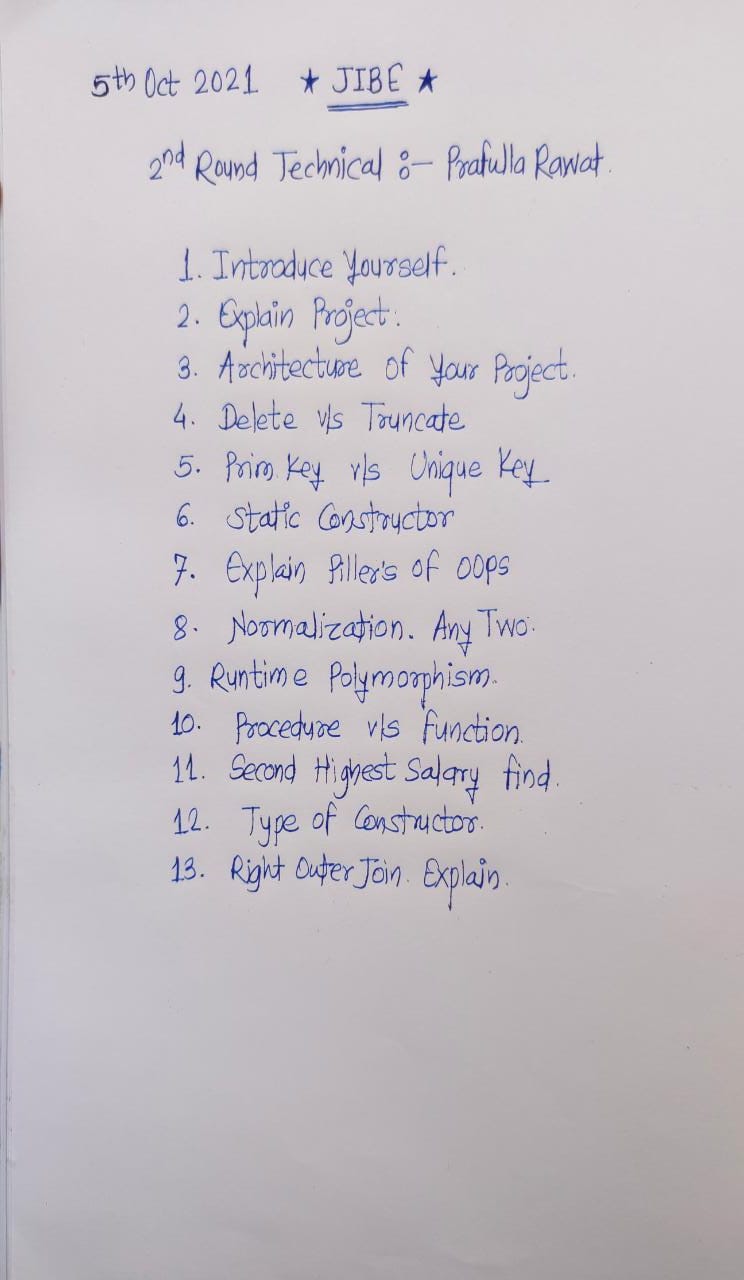 5th Oct 2021 ★ JIBE ★
2nd Round Technical :- Prafulla Rawat.
1. Introduce Yourself.
2. Explain Project.
3. Architecture of Your Project.
4. Delete v/s Truncate
5. Prim. Key v/s Unique Key
6. Static Constructor
7. Explain Piller's of OOPS
8. Normalization. Any Two.
9. Runtime Polymorphism.
10. Procedure v/s function.
11. Second Highest Salary find.
12. Type of Constructor.
13. Right Outer Join. Explain.